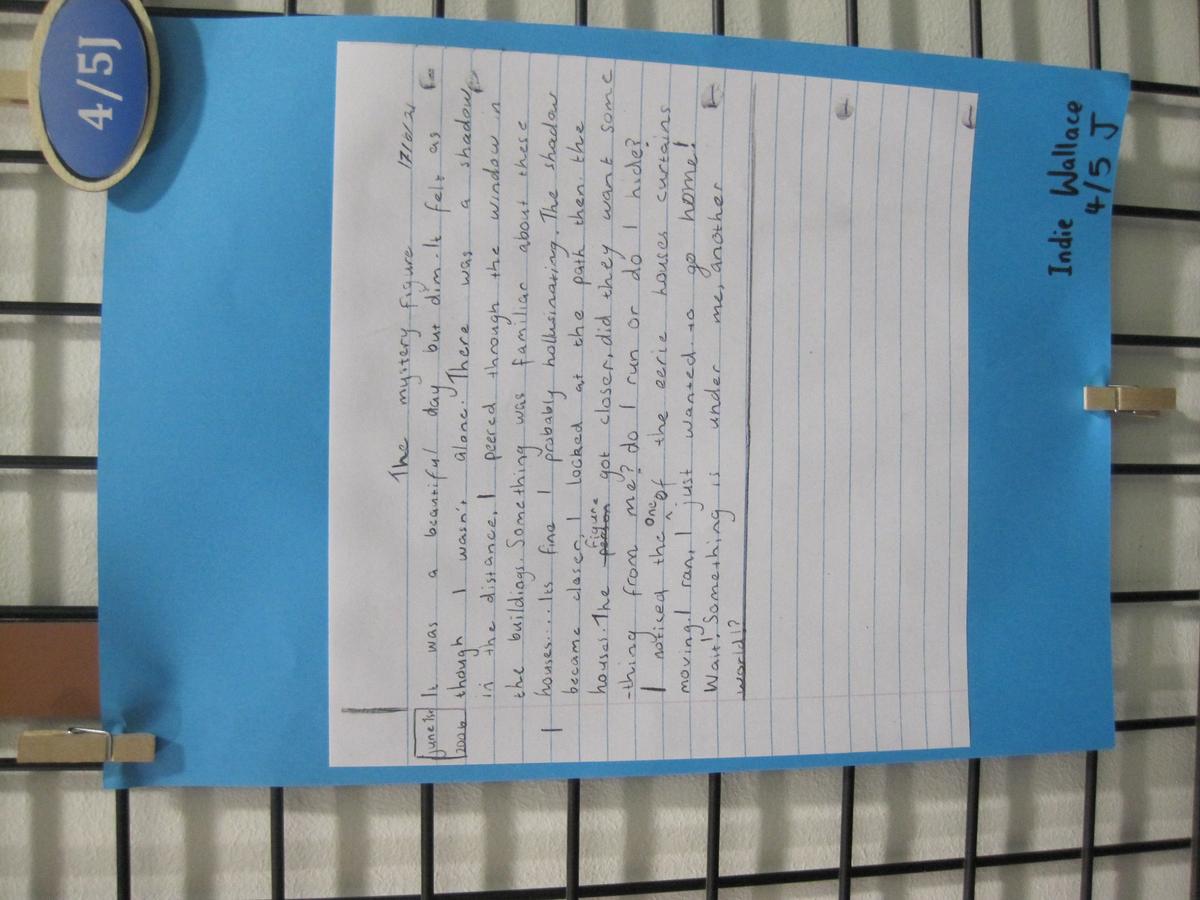 4/5J
The mystery figure 17/6/21
June 1st
2006
It was a beautiful day but dim. It felt as
though I wasn't alone. There was a shadow
in the distance. I peered through the window in
the buildings. Something was familiar about these
houses.... Its fine I probably hollusinating. The shadow
became closer, I locked at the path then the
house. The person figure got closer, did they want some
-thing from me? do I run or do I hide?
I noticed the one of the eerie houses curtains
moving. I ran, I just wanted to go home!
Wait! Something is under me, another
world!?
Indie Wallace
4/5 J